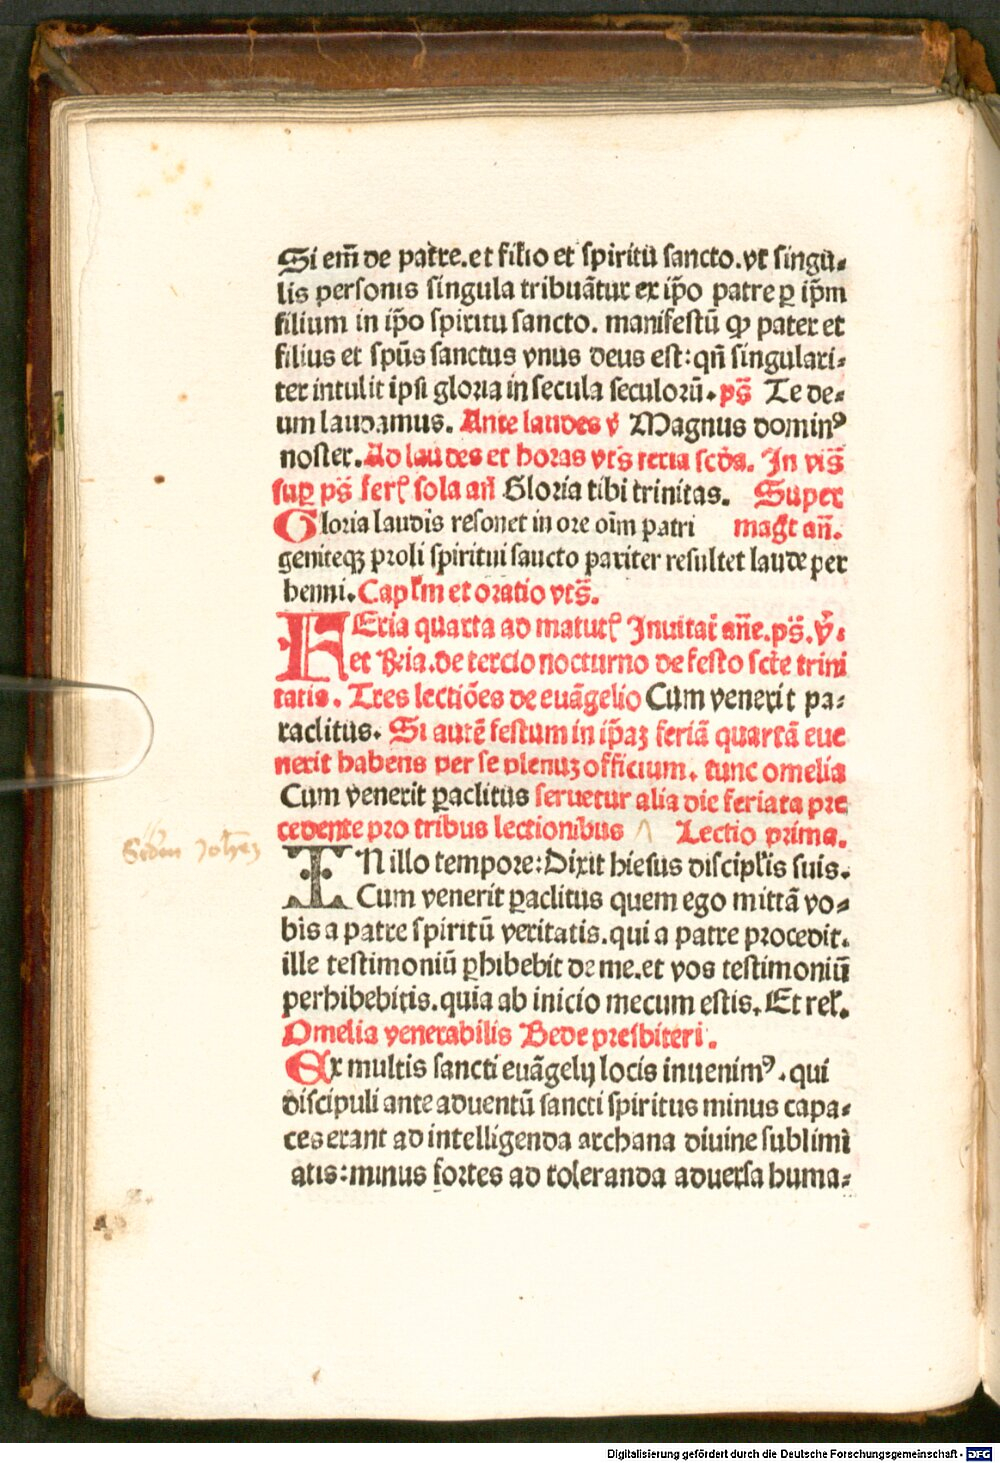 Si em̄ de patre.et filio et spiritū sancto.vt singu⸗
lis personis singula tribuātur ex ip̄o patre ꝑ ip̄m
filium in ip̄o spiritu sancto. manifestū ꝙ pater et
filius et sp̄us sanctus vnus deus est: qn̄ singulari⸗
ter intulit ip̄si gloria in secula seculorū. ps̄ Te de⸗
um laudamus. Ante laudes v̄ Magnus dominꝰ
noster. Ad laudes et horas vts̄ feria scd̄a. In vis̄
suꝑ ps̄ ferꝭ sola an̄ Gloria tibi trinitas. Super
Gloria laudis resonet in ore oīm patri maḡt an̄.
geniteqꝫ proli spiritui sancto pariter resultet laude per
henni. Caplm̄ et oratio vts̄.
FEria quarta ad matutꝭ Inuitat̄ an̄e.ps̄.v̄.
et Rn̄ia.de tercio nocturno de festo scte trini
tatis. Tres lectiōes de euāgelio Cum venerit pa⸗
raclitus. Si autē festum in ip̄aꝫ feriā quartā eue
nerit habens per se plenuꝫ officium. tunc omelia
Cum venerit ꝑaclitus seruetur alia die feriata pre
cedente pro tribus lectionibus Lectio prima.
IN illo tempore: Dixit hiesus discipl̄is suis.
Cum venerit ꝑaclitus quem ego mittā vo⸗
bis a patre spiritū veritatis.qui a patre procedit.
ille testimoniū ꝑhibebit de me.et vos testimoniū
perhibebitis.quia ab inicio mecum estis. Et rel̄.
Omelia venerabilis Bede presbiteri.
Ex multis sancti euāgelij locis inuenimꝰ. qui
discipuli ante aduentū sancti spiritus minus capa⸗
ces erant ad intelligenda archana diuine sublimi
atis: minus fortes ad toleranda aduersa huma⸗
Digitalisierung gefördert durch die Deutsche Forschungsgemeinschaft - DFG